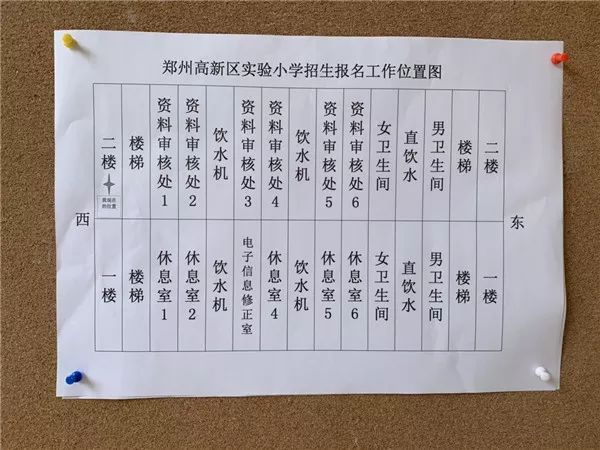 郑州高新区实验小学招生报名工作位置图
西
二楼
您现在的位置
楼梯
资料审核处1
资料审核处2
饮水机
资料审核处3
资料审核处4
饮水机
资料审核处5
资料审核处6
女卫生间
直饮水
男卫生间
楼梯
二楼
一楼
楼梯
休息室1
休息室2
饮水机
电子信息修正室
休息室4
饮水机
休息室5
休息室6
女卫生间
直饮水
男卫生间
楼梯
一楼
东